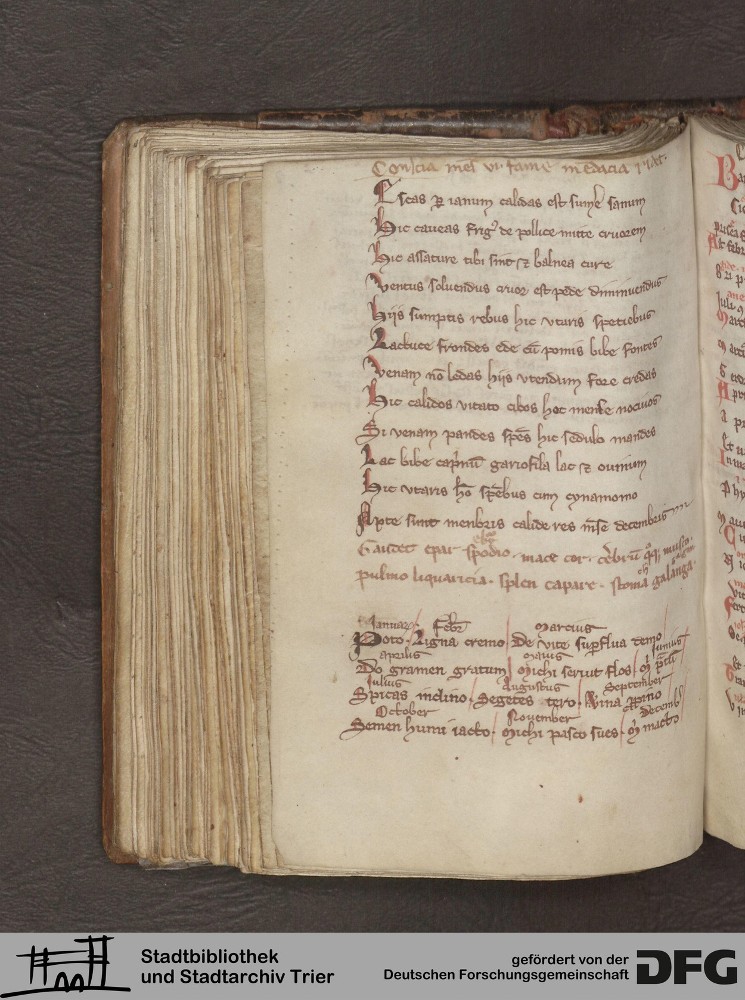 Conscia mens vt fame mẽdacia
Escas ꝑ ianum calidas est sume᷒ sanum
Hic caueas frigꝰ de pollice mitte cruorem
Hic assature tibi sint ⁊ balnea cure
Ventus soluendus cruor est pede diminuendus
Hijs sumptis rebus hic vtaris speciebus
Lactuce frondes ede cũ pomis bibe fontes
Venam nõ ledas hijs vtendum fore credas
Hic calidos vitato cibos hoc mense nociuos
Si venam pandes spẽs hic sedulo mandes
Lac bibe cap̃inũ gariofila lac ⁊ ouinum
Hic vtaris sp̃ebus cum cynamomo
Apte sunt menbris calide res mẽse decembris
Gaudet epar spodio. mace cor. cereb᷒rũ qq̃ musco.
pulmo liquaricia. splen capare. stoma galanga.
Januarꝰ Febrꝰ marcius
Poto. Ligna cremo. De vite suꝑflua temo
aprilis maius Junius
Do gramen gratum. michi seruit flos. m̃ p̃tũ
Julius Augustus September
Spicas inclino. Segetes tero. Vina ꝓpino
October November Decemb
Semen humi iacto. michi pasco sues. m̃ macto
Stadtbibliothek
und Stadtarchiv Trier
gefördert von der
Deutschen Forschungsgemeinschaft
DFG